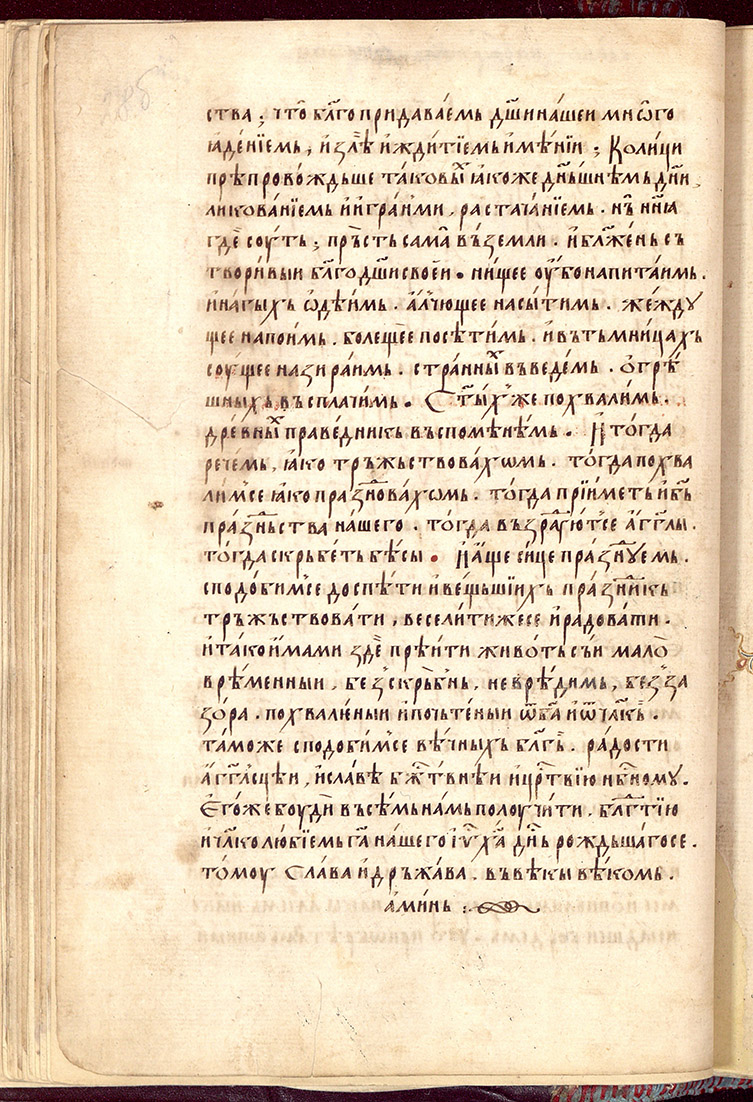 ства ; что̀ бл҃го придава́емь дш҃и на́шеи мнѡ́го
ꙗде́нїемь , и҆ злѣ̀ и҆ждитїемь и҆мѣ́нїи ; Коли́ци
прѣпрово́ждьше таковы́ⷯ ꙗ҆коже дн҃ьшнѣмь дн҃и ,
ликова́нїемь и҆ и҆гра́нми , растача́нїемь . нъ̀ нн҃ꙗ
гдѐ соу́ть ; пръ́сть сама̀ въ земли . и҆ бла́жень съ
твори́выи бл҃го дш҃и своеи . ни́щее оу҆́бо напита́имь .
и҆ нагы́хь ѡ҆дѣ́имь . а҆́лчющее насы́тимь . же́жду
щее напои́мь . болеще́е посѣ́тимь . и҆ въ тьмни́цахъ
соу́щее назира́имь . стра́нныⷯ въведе́мь . ѻ҆ грѣ́
шныхь въспла́чимь . Ст҃ы́х же похва́лимь .
дрѣ́вныⷯ пра́ведникь въспомѣне́мь . И҆ тогда
рече́мь , ꙗ҆́ко тръжьствова́хѡмь . тогда похва
ли́м се ꙗ҆́ко пра́зⷣнова́хѡмь . то́гда прїи́меть и҆ бь҃
пра́зⷣньства на́шего . тогда възра́ⷣꙋют се а҆́гг҃лы .
то́гда скръбе́ть бѣ́сы . И҆ а҆́ще си́це пра́зⷣнуемь .
сподо́бим се доспѣ́ти и҆ ве́щьшїихь пра́зⷣникь
тръ́жьствовати , весели́ти же се и҆ ра́довати .
и҆ та́ко и҆́мами здѐ прѣи́ти живо́ть съѝ мало̀
врѣ́менныи , без̾ скръ́бнь , невреди́мь , без̾ за
зо́ра . похвали́еныи и҆ почьте́ныи ѿ ба҃ и҆ ѿ чл҃кь .
та́може сподо́бим се вѣ́чныхь бл҃гь . ра́дости
а҆́гг҃лсцѣи , и҆ сла́вѣ бжⷭ҇твнѣи и҆ црⷭ҇твїю нбⷭ҇ному .
Е҆го́же боуди въсѣ́мь на́мь полоучи́ти . блгⷣтїю
и҆ чл҃колю́бїемь га҃ на́шего і҆ѵ҃ ха҃ дн҃ь ро́ждьшаго се .
то́моу сла́ва и҆ дръжа́ва . въ вѣ́кы вѣ́комь .
а҆ми́нь :